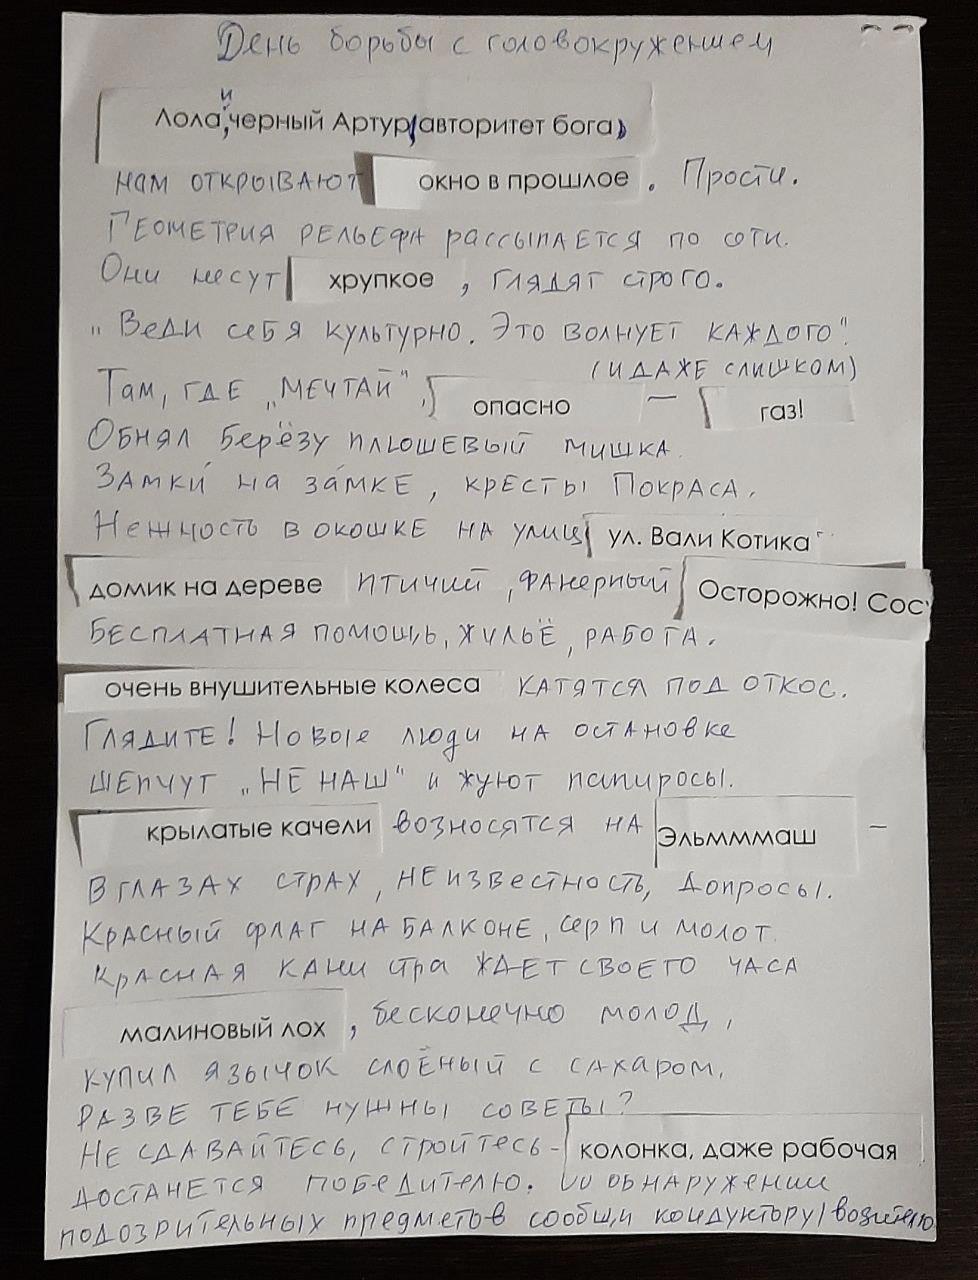 День борьбы с головокружением
Лола, и черный Артур (авторитет бога)
нам открывают окно в прошлое. Прости.
Геометрия рельефа рассыпается по соти.
Они несут хрупкое, глядят строго.
"Веди себя культурно. Это волнует каждого".
(и даже слишком)
Там, где "мечтай", опасно — газ!
Обнял берёзу плюшевый мишка.
Замки́ на за́мке, кресты Покраса.
Нежность в окошке на улиц ул. Вали Котика
домик на дереве птичий, фанерный Осторожно! Сос
Бесплатная помощь, жульё, работа.
очень внушительные колеса катятся под откос.
Глядите! Новые люди на остановке
шепчут "не наш" и жуют папиросы.
крылатые качели возносятся на Эльмммаш –
В глазах страх, неизвестность, допросы.
Красный флаг на балконе, серп и молот.
Красная канистра ждет своего часа
малиновый лох, бесконечно молод,
купил язычок слоёный с сахаром.
Разве тебе нужны советы?
Не сдавайтесь, стройтесь - колонка, даже рабочая
достанется победителю. обнаружении
подозрительных предметов сообщи кондуктору/возителю